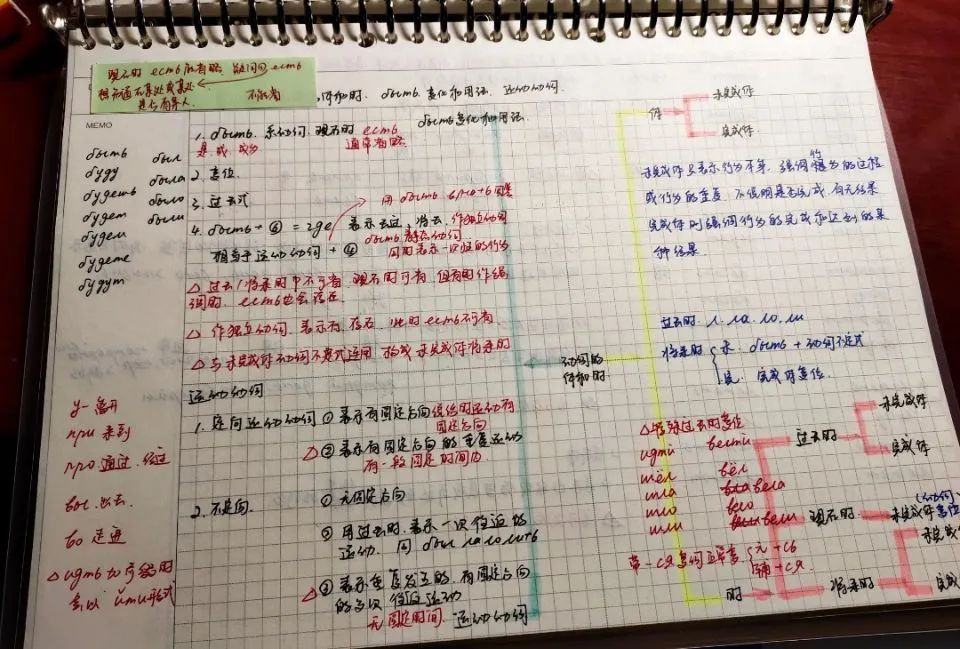 现在时 есть 应省略 疑问句 есть
不省
体和时. быть 变化和用法. 运动动词
MEMO
быть был
буду была
будешь было
будет были
будем
будете
будут
1. быть. 系动词. 现在时 есть
是. 成. 成为 通常省略
быть变化和用法.
2. 变位.
3. 过去式
用 быть 
4. быть + ⑥ = где 表示去过, 将去 作独立动词
相当于运动动词 + ④
同用表示一次往返的行为
△ 过去/将来时中不可省. 现在时可省. 但有时作强
调时. есть也会存在
△ 作独立动词. 表示有. 存在. 此时есть不可省
△ 与未完成体动词不定式连用 构成未完成体将来时
运动动词
1. 定向运动动词 ① 表示有固定方向
固定方向
△ ② 表示有固定方向的重复运动
有一段固定时间内
2. 不定向. ① 无固定方向
② 用过去时. 表示一次往返的
运动. 同 был ла ло ли + в
△ ③ 表示重复发生的. 有固定方向
的多次 往返运动
无固定时间. 运动动词
у- 离开
при 来到
про 通过. 经过
вы. 出去.
во 走进
△ идти 加前缀时
йти形式
动词的
体和时.
体 未完成体
完成体.
未完成体只表示行为本身. 强调行为的过程
或行为的重复. 不说明是否完成. 有无结果
完成体则强调行为的完成和达到的某
种结果.
过去时 л. ла. ло. ли
将来时 未. быть + 动词不定式
完. 完成体变位.
△ 特殊过去时变位
идти вести
шёл вёл
шла вела
шло вело
шли вели
带-ся动词 元 + сь
辅 + ся.
时
过去时 未完成体
完成体
现在时. 未完成体
将来时 未完成体
完成